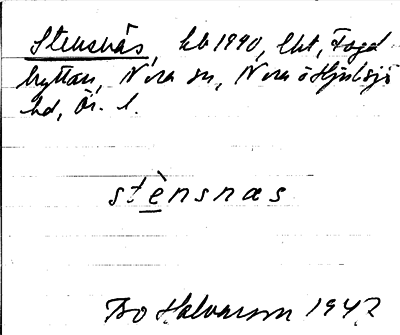 Stensnäs, kb 1990, lht, Fogd
hyttan, Nora sn, Nora o Hjulsjö
hd, Ör. l.
stènsnæs
Bo Halvarson 1942